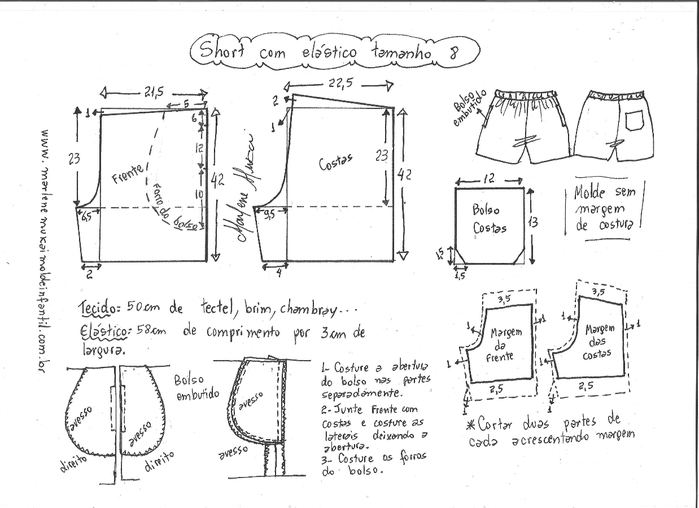 Short com elástico tamanho 8
21,5
5
1
6
12
10
23
42
Frente
forro do
bolso
6,5
2
Marlene Mukai
22,5
2
1
Costas
23
42
9,5
4
Bolso
embutido
12
Bolso
Costas
13
1,5
1,5
Molde sem
margem
de costura
www.marlenemukaimoldeinfantil.com.br
Tecido: 50cm de tectel, brim, chambray...
Elástico: 58cm de comprimento por 3cm de
largura.
Bolso
embutido
avesso
avesso
direito
direito
avesso
avesso
1- Costure a abertura
do bolso nas partes
separadamente.
2- Junte Frente com
costas e costure as
laterais deixando a
abertura.
3- Costure os forros
do bolso.
3,5
1
1
Margem
da
frente
1
2,5
1
3,5
1
1
Margem
das
costas
1
2,5
1
*Cortar duas partes de
cada acrescentando margem